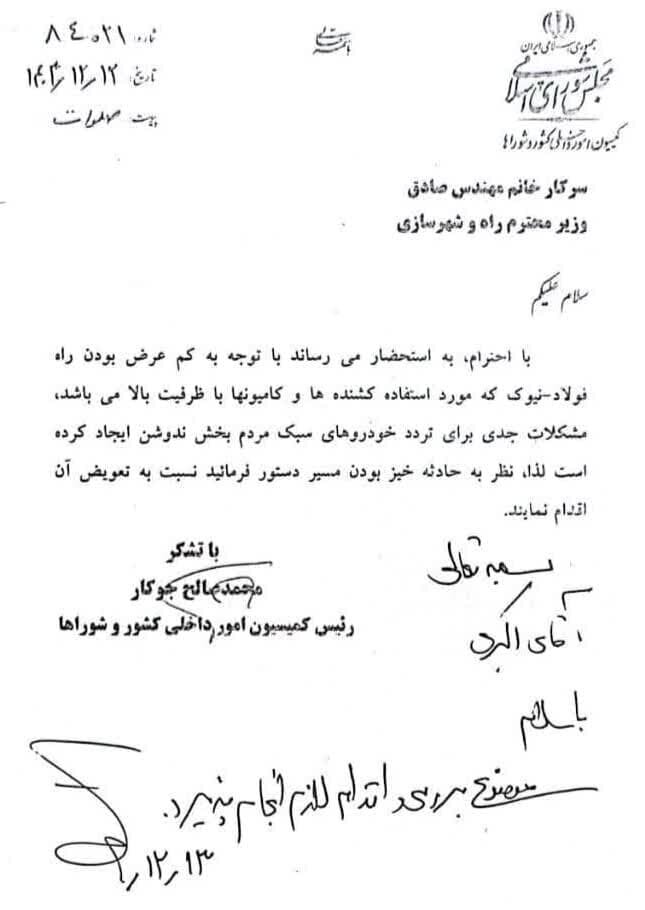 جمهوری اسلامی ایران
مجلس شورای اسلامی
کمیسیون امور داخلی کشور و شوراها
شماره: ۸۴۰۲۱
تاریخ: ۱۴۰۳/۱۲/۱۲
پیوست
سرکار خانم مهندس صادق
وزیر محترم راه و شهرسازی
سلام علیکم
با احترام، به استحضار می رساند با توجه به کم عرض بودن راه
فولاد-نیوک که مورد استفاده کشنده ها و کامیونها با ظرفیت بالا می باشد،
مشکلات جدی برای تردد خودروهای سبک مردم بخش ندوشن ایجاد کرده
است لذا، نظر به حادثه خیز بودن مسیر دستور فرمائید نسبت به تعویض آن
اقدام نمایند.
با تشکر
محمدصالح جوکار
رئیس کمیسیون امور داخلی کشور و شوراها
بسمه تعالی
آقای اکبری
با سلام
موضوع بررسی و اقدام لازم انجام پذیرد.
۱۲/۱۳